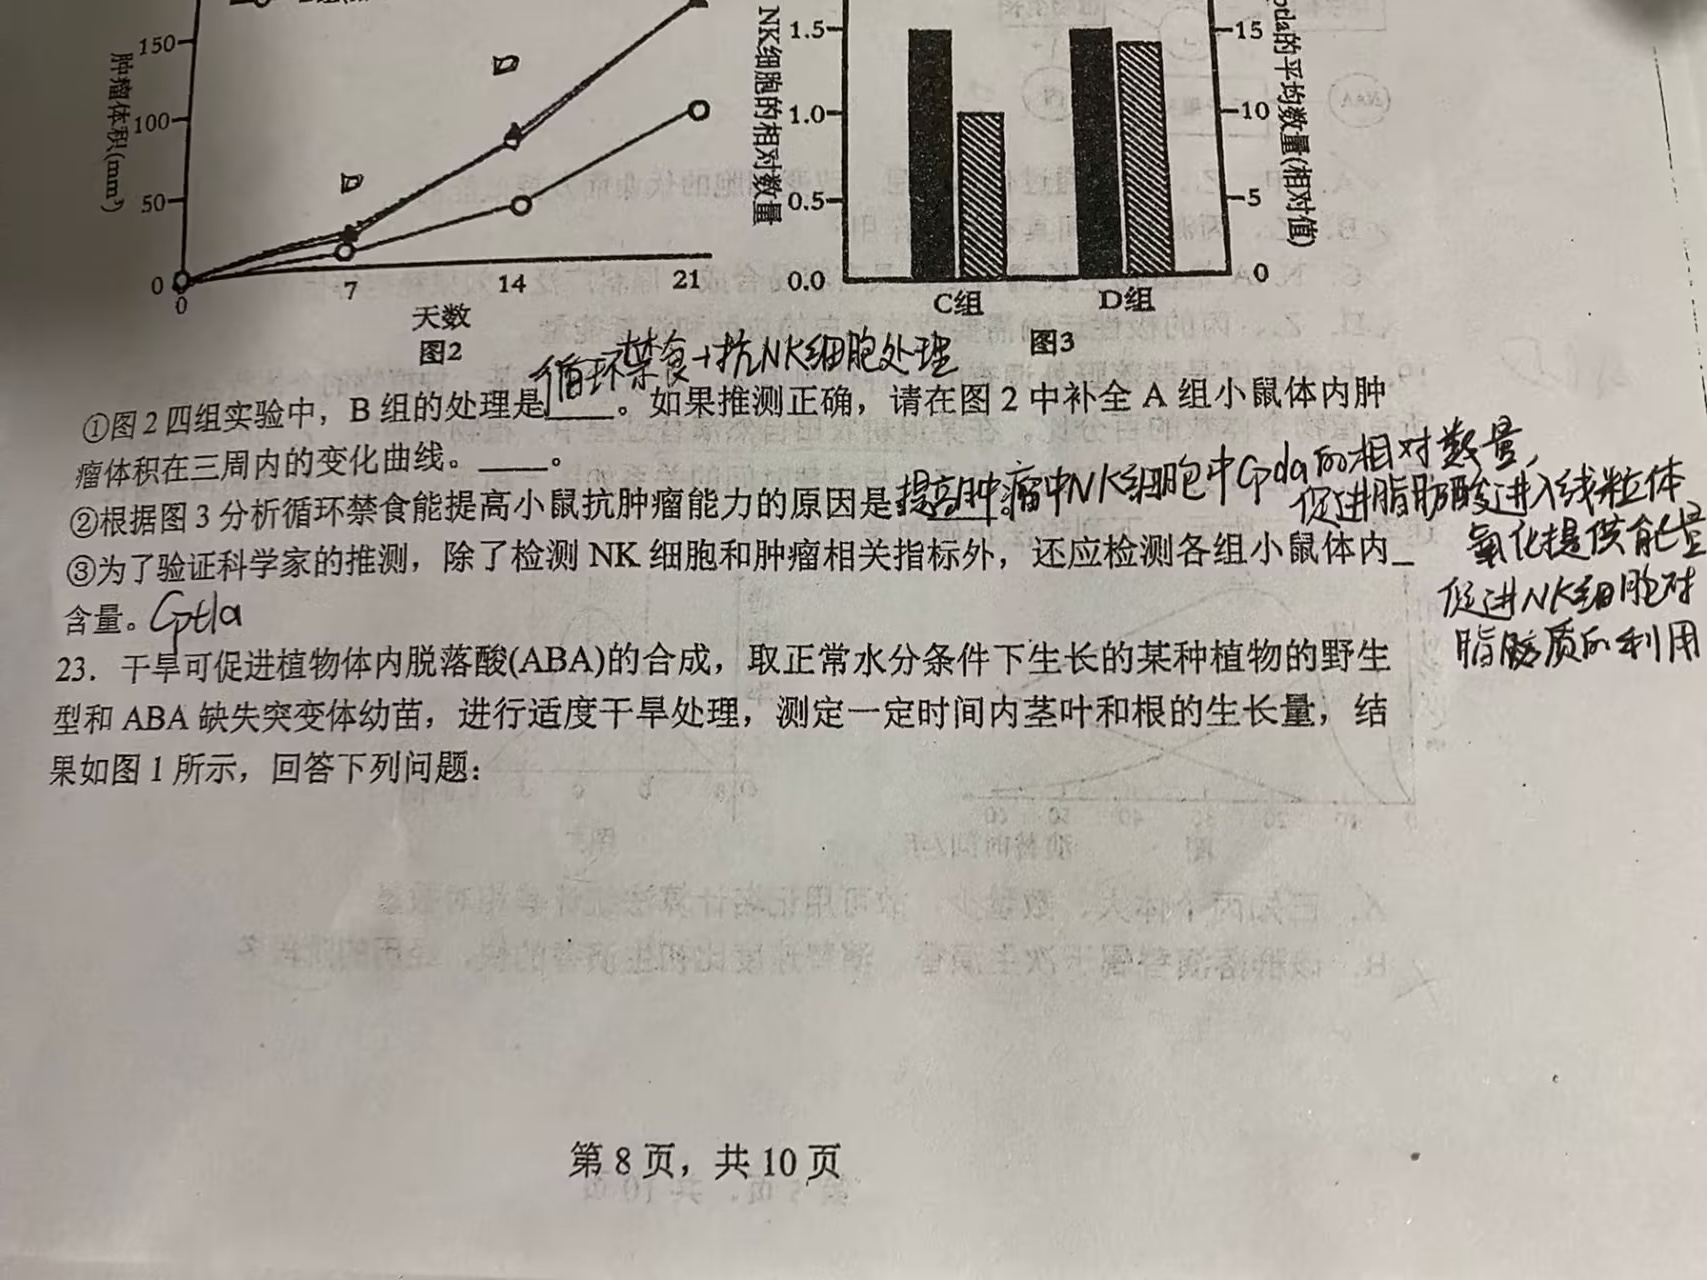 150
100
50
0
肿瘤体积(mm³)
0 7 14 21
天数
图2
NK细胞的相对数量
1.5
1.0
0.5
0.0
15
10
5
0
pda的平均数量(相对值)
C组 D组
图3
循环禁食+抗NK细胞处理
①图2四组实验中，B组的处理是____。如果推测正确，请在图2中补全A组小鼠体内肿
瘤体积在三周内的变化曲线。____。
②根据图3分析循环禁食能提高小鼠抗肿瘤能力的原因是提高肿瘤中NK细胞中Cpda的相对数量，
促进脂肪酸进入线粒体
氧化提供能量
促进NK细胞对
脂肪质的利用
③为了验证科学家的推测，除了检测NK细胞和肿瘤相关指标外，还应检测各组小鼠体内_
含量。Cpt1a
23．干旱可促进植物体内脱落酸(ABA)的合成，取正常水分条件下生长的某种植物的野生
型和ABA缺失突变体幼苗，进行适度干旱处理，测定一定时间内茎叶和根的生长量，结
果如图1所示，回答下列问题：
第8页，共10页